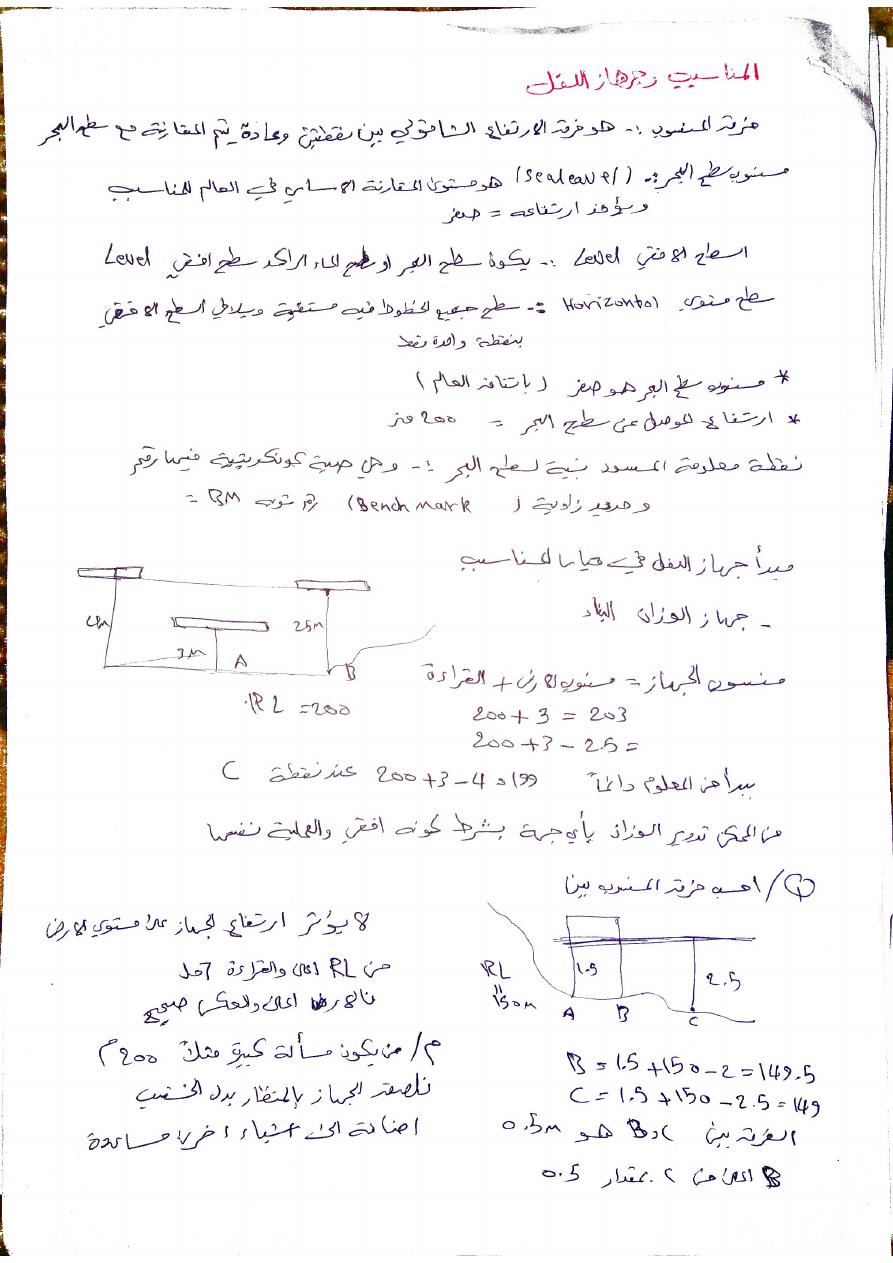 المناسيب وجهاز اللفل
فرق المنسوب :- هو فرق الارتفاع الشاقولي بين نقطتين وعادة يتم المقارنة مع سطح البحر
منسوب سطح البحر :- (Sealeavel) هو مستوى المقارنة الاساسي في العالم للمناسيب
ويؤخذ ارتفاعه = صفر
السطح الافقي Level :- يكون سطح البحر او سطح الماء الراكد سطح افقي Level
سطح مستوي Horizontal :- سطح جميع الخطوط فيه مستقيمة ويلاقي السطح الافقي
بنقطة واحدة فقط
* منسوب سطح البحر هو صفر (باتفاق العالم)
* ارتفاع الموصل عن سطح البحر = 200 متر
نقطة معلومة المنسوب نسبة لسطح البحر :- وهي صبة كونكريتية فيها رقم
وحديد زاوية (Bench mark) = BM
مبدأ جهاز اللفل في قياس المناسيب
- جهاز الوزان البناء
4M
3M
A
2.5M
B
RL = 200
منسوب الجهاز = منسوب الارض + القراءة
200 + 3 = 203
200 + 3 - 2.5 =
يبدأ من المعلوم دائماً 200 + 3 - 4 = 199 عند نقطة C
من الممكن تدوير الوزان بأي جهة بشرط كونه افقي والعملية نفسها
Q1/ احسب فرق المنسوب بين
RL
=
150m
1.5
2.5
A B C
B = 1.5 + 150 - 2 = 149.5
C = 1.5 + 150 - 2.5 = 149
الفرق بين B و C هو 0.5m
B اعلى من C بمقدار 0.5
لا يؤثر ارتفاع الجهاز على مستوى الارض
من RL اعلى والقراءة اقل
فالارض اعلى والعكس صحيح
م/ من يكون مسألة كبيرة مثلاً 200 م
نلصق الجهاز بالمنظار بدل الخشب
اضافة الى اشياء اخرى مساعدة